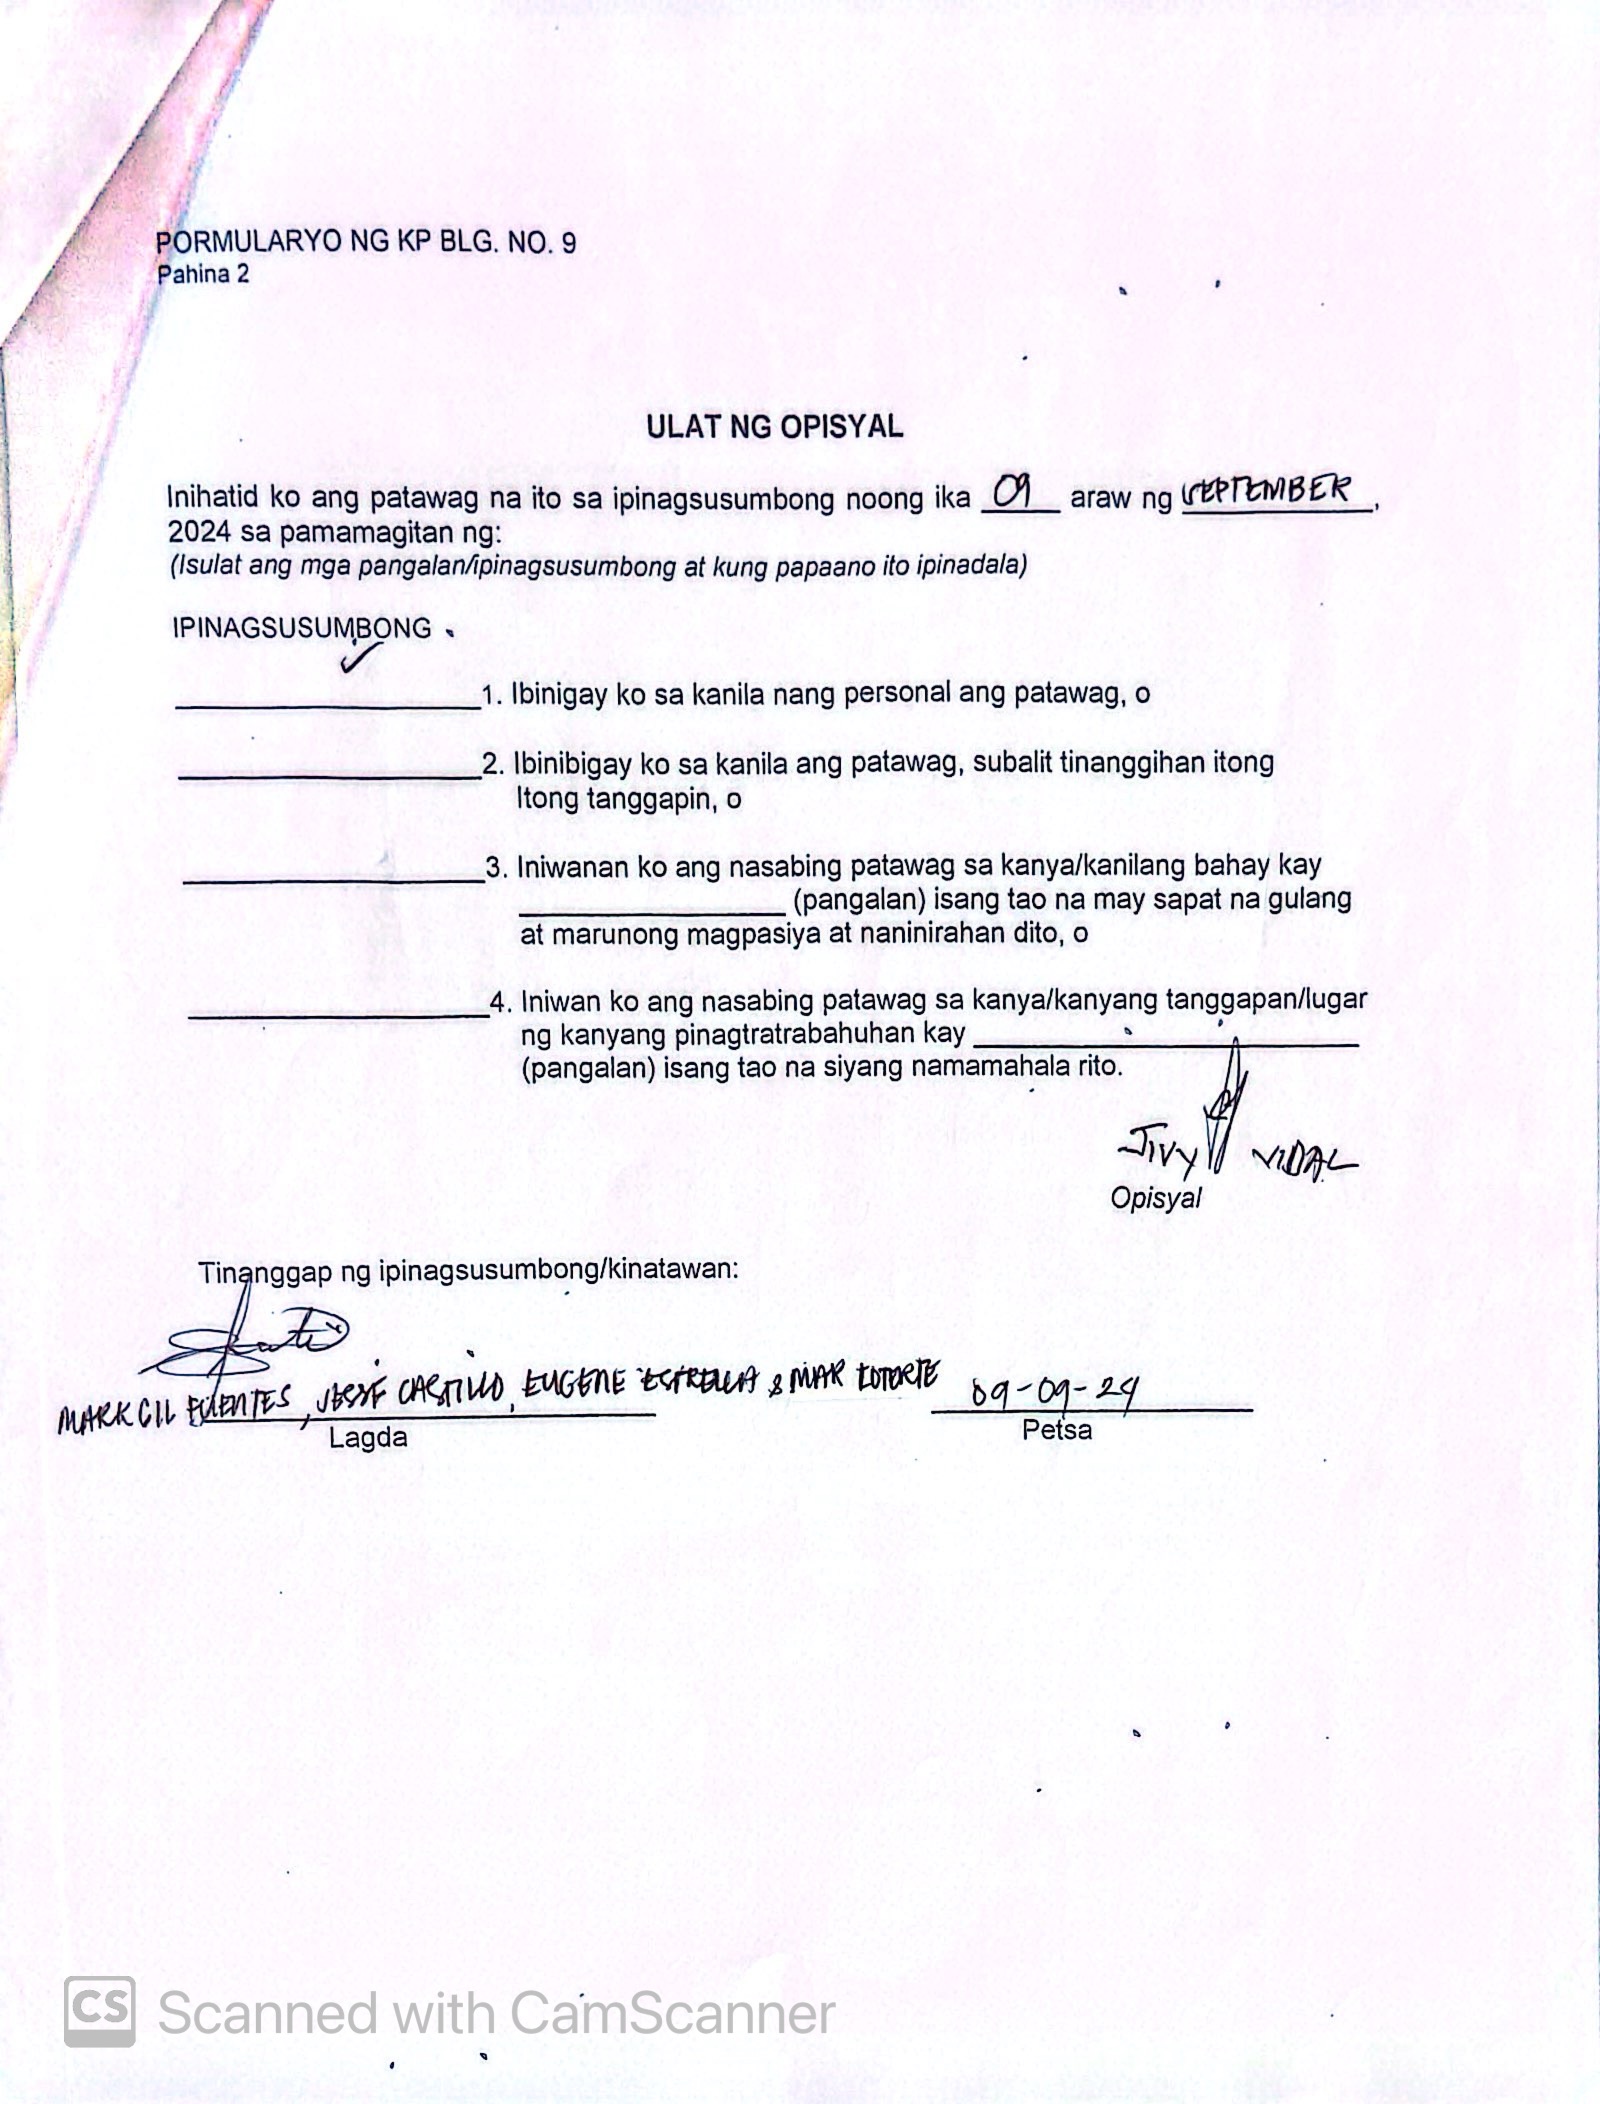 PORMULARYO NG KP BLG. NO. 9
Pahina 2
ULAT NG OPISYAL
Inihatid ko ang patawag na ito sa ipinagsusumbong noong ika 09 araw ng SEPTEMBER,
2024 sa pamamagitan ng:
(Isulat ang mga pangalan/ipinagsusumbong at kung papaano ito ipinadala)
IPINAGSUSUMBONG
✓
1. Ibinigay ko sa kanila nang personal ang patawag, o
2. Ibinibigay ko sa kanila ang patawag, subalit tinanggihan itong
Itong tanggapin, o
3. Iniwanan ko ang nasabing patawag sa kanya/kanilang bahay kay
(pangalan) isang tao na may sapat na gulang
at marunong magpasiya at naninirahan dito, o
4. Iniwan ko ang nasabing patawag sa kanya/kanyang tanggapan/lugar
ng kanyang pinagtratrabahuhan kay
(pangalan) isang tao na siyang namamahala rito.
JIVY VIDAL
Opisyal
Tinanggap ng ipinagsusumbong/kinatawan:
MARK GIL FUENTES, JESSE CASTILLO, EUGENE ESTRELLA & MAR
09-09-24
Lagda
Petsa
CS Scanned with CamScanner